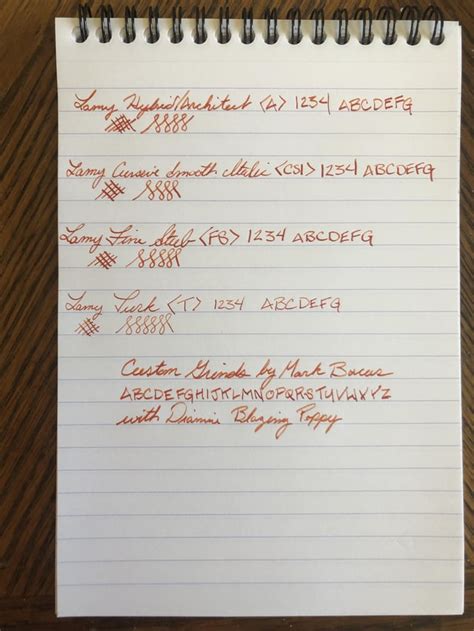 Lamy Hybrid/Architect <A> 1234 ABCDEFG
Lamy Cursive Smooth Italic <CSI> 1234 ABCDEFG
Lamy Fine Stub <FS> 1234 ABCDEFG
Lamy Turk <T> 1234 ABCDEFG
Custom Grinds by Mark Bacas
ABCDEFGHIJKLMNOPQRSTUVWXYZ
with Diamine Blazing Poppy